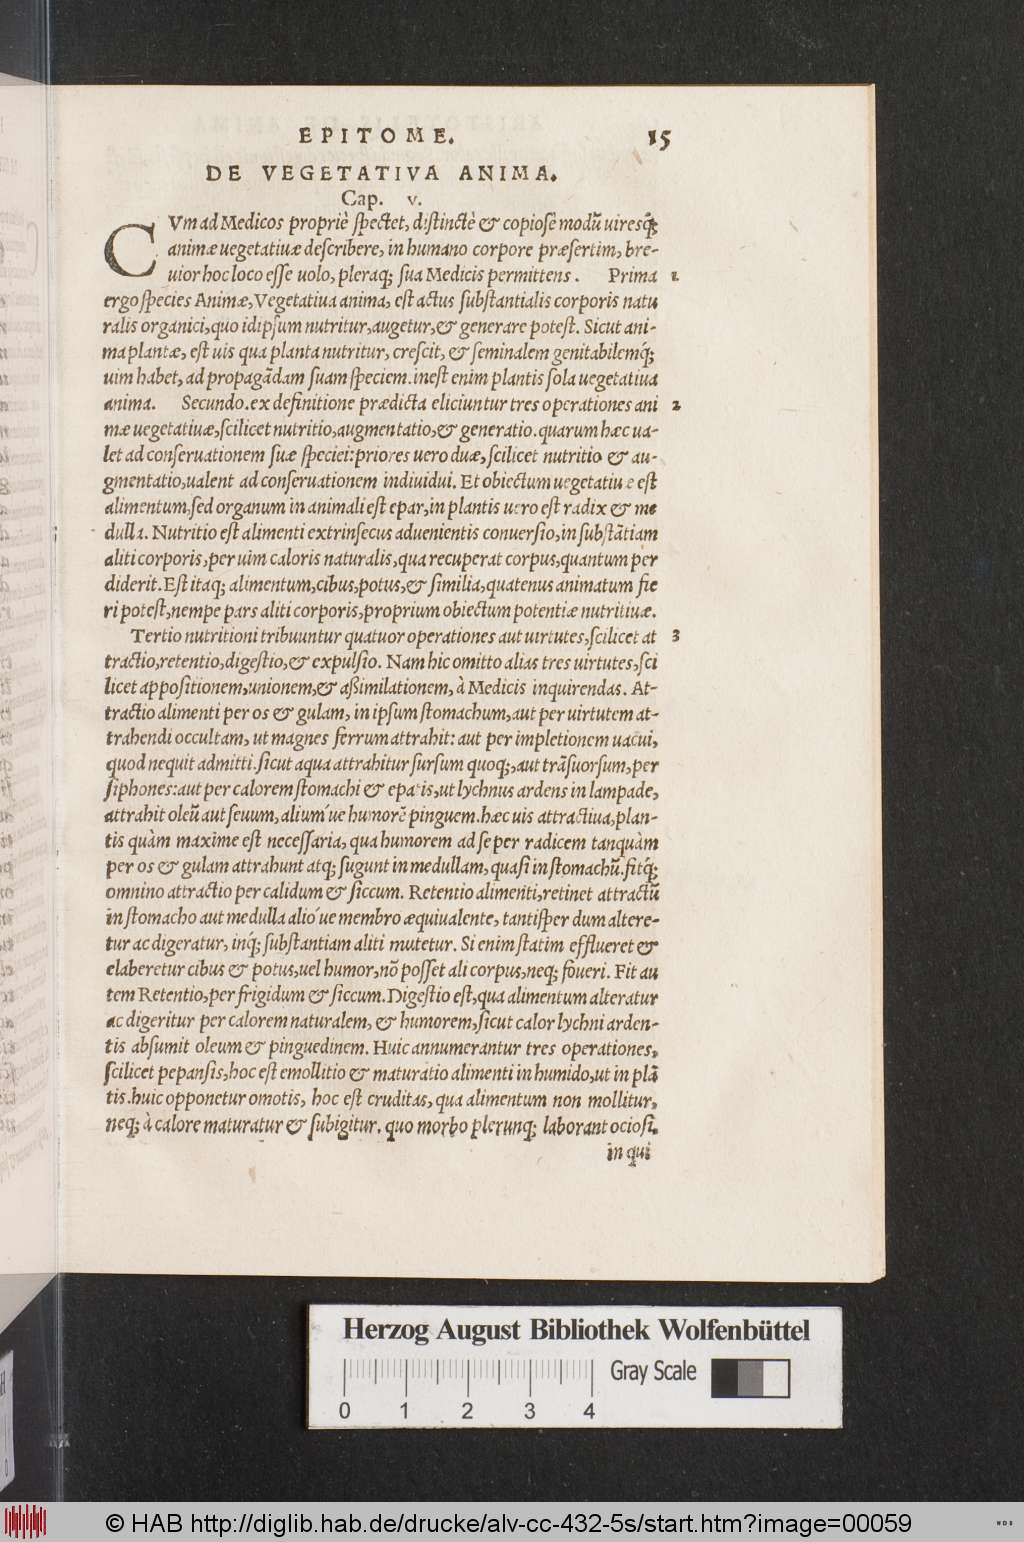 EPITOME. 15
DE VEGETATIVA ANIMA.
Cap. v.
CVm ad Medicos propriè spectet, distinctè & copiosè modũ uiresq́;
animæ uegetatiuæ describere, in humano corpore præsertim, bre-
uior hoc loco esse uolo, pleraq; sua Medicis permittens. Prima 1
ergo species Animæ, Vegetatiua anima, est actus substantialis corporis natu
ralis organici, quo id ipsum nutritur, augetur, & generare potest. Sicut ani-
ma plantæ, est uis qua planta nutritur, crescit, & seminalem genitabilemq́;
uim habet, ad propagãdam suam speciem. inest enim plantis sola uegetatiua
anima. Secundo. ex definitione prædicta eliciuntur tres operationes ani 2
mæ uegetatiuæ, scilicet nutritio, augmentatio, & generatio. quarum hæc ua-
let ad conseruationem suæ speciei: priores uero duæ, scilicet nutritio & au-
gmentatio, ualent ad conseruationem indiuidui. Et obiectum uegetatiuæ est
alimentum, sed organum in animali est epar, in plantis uero est radix & me
dulla. Nutritio est alimenti extrinsecus aduenientis conuersio, in substãtiam
aliti corporis, per uim caloris naturalis, qua recuperat corpus, quantum per
diderit. Est itaq; alimentum, cibus, potus, & similia, quatenus animatum fie
ri potest, nempe pars aliti corporis, proprium obiectum potentiæ nutritiuæ.
Tertio nutritioni tribuuntur quatuor operationes aut uirtutes, scilicet at 3
tractio, retentio, digestio, & expulsio. Nam hic omitto alias tres uirtutes, sci
licet appositionem, unionem, & aßimilationem, à Medicis inquirendas. At-
tractio alimenti per os & gulam, in ipsum stomachum, aut per uirtutem at-
trahendi occultam, ut magnes ferrum attrahit: aut per impletionem uacui,
quod nequit admitti. sicut aqua attrahitur sursum quoq;, aut trãsuorsum, per
siphones: aut per calorem stomachi & epatis, ut lychnus ardens in lampade,
attrahit oleũ aut seuum, alium´ue humorẽ pinguem. hæc uis attractiua, plan-
tis quàm maxime est necessaria, qua humorem ad se per radicem tanquàm
per os & gulam attrahunt atq; sugunt in medullam, quasi in stomachũ. fitq́;
omnino attractio per calidum & siccum. Retentio alimenti, retinet attractũ
in stomacho aut medulla alio´ue membro æquiualente, tantisper dum altere-
tur ac digeratur, inq́; substantiam aliti mutetur. Si enim statim efflueret &
elaberetur cibus & potus, uel humor, nõ posset ali corpus, neq; foueri. Fit au
tem Retentio, per frigidum & siccum. Digestio est, qua alimentum alteratur
ac digeritur per calorem naturalem, & humorem, sicut calor lychni arden-
tis absumit oleum & pinguedinem. Huic annumerantur tres operationes,
scilicet pepansis, hoc est emollitio & maturatio alimenti in humido, ut in plã
tis. huic opponetur omotis, hoc est cruditas, qua alimentum non mollitur,
neq; à calore maturatur & subigitur. quo morbo plerunq; laborant ociosi.
in qui
Herzog August Bibliothek Wolfenbüttel
Gray Scale
0 1 2 3 4
© HAB http://diglib.hab.de/drucke/alv-cc-432-5s/start.htm?image=00059